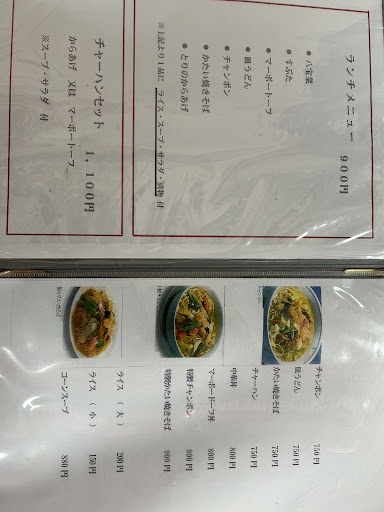 ランチメニュー　９００円
● 八宝菜
● すぶた
● マーボートーフ
● 皿うどん
● チャンポン
● かたい焼きそば
● とりのからあげ
※上記より１品に　ライス・スープ・サラダ・漬物　付
チャーハンセット　１，１００円
からあげ　又は　マーボートーフ
※スープ・サラダ　付
チャンポン　750円
皿うどん　750円
かたい焼きそば　750円
チャーハン　750円
中華丼　800円
マーボードーフ丼　800円
特製チャンポン　900円
特製かたい焼きそば　900円
ライス（大）　200円
ライス（小）　150円
コーンスープ　880円